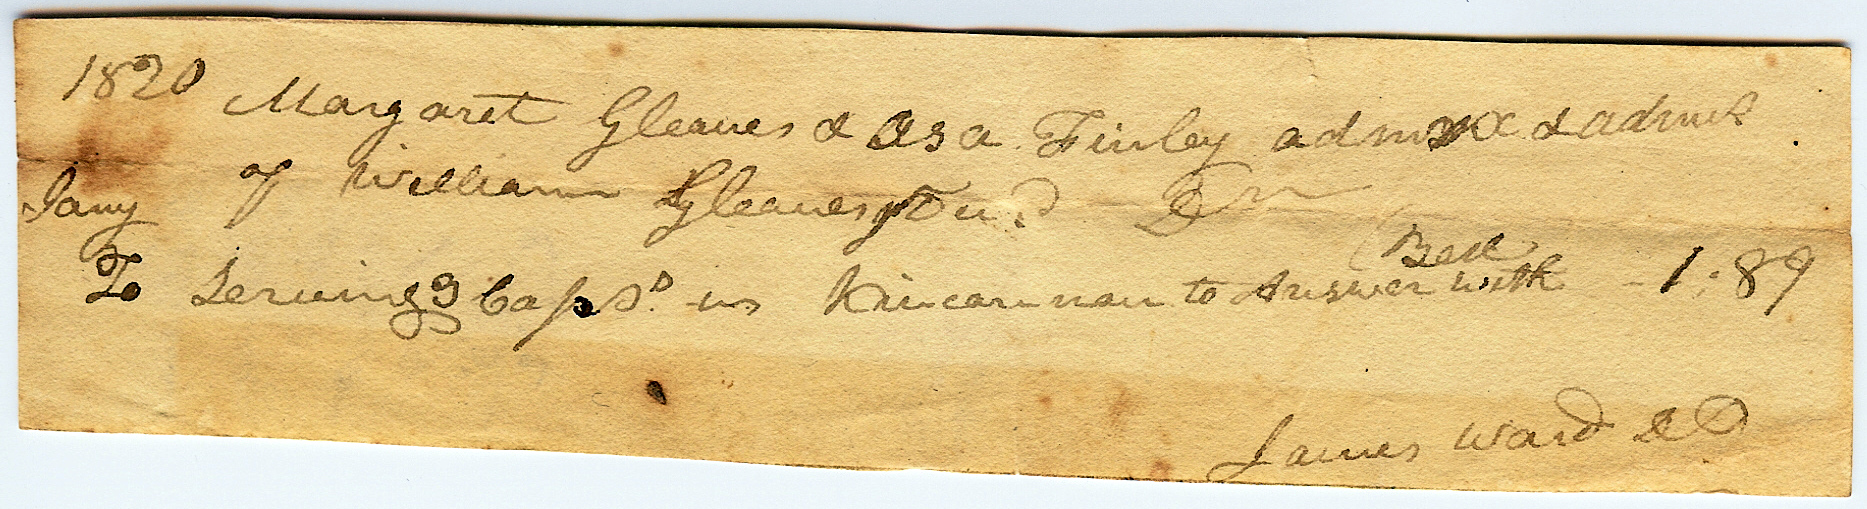 1820 Margaret Gleaves & Asa Finley admxx & admst
Jany of William Gleaves Dr
Bell
To Serving 3 Caps D. vs Kincannon to Answer with - 1.89
James Ward